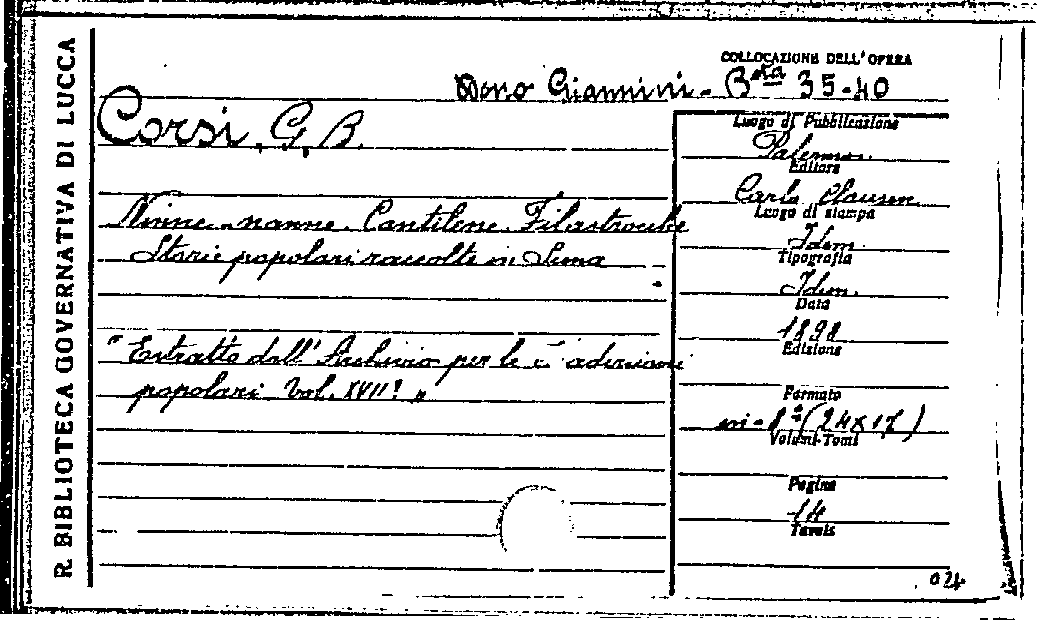 R. BIBLIOTECA GOVERNATIVA DI LUCCA
COLLOCAZIONE DELL'OPERA
Dono Giannini - Bta 35-40
Corsi, G. B.
Ninne-nanne. Cantilene. Filastrocche
Storie popolari raccolte in Siena
"Estratto dall'Archivio per le
popolari Vol. XVII° "
Luogo di Pubblicazione
Palermo.
Editore
Carlo Clausen
Luogo di stampa
Idem.
Tipografia
Idem.
Data
1898
Edizione
Formato
in-8° (24x17)
Volumi-Tomi
Pagine
14
Tavole
024